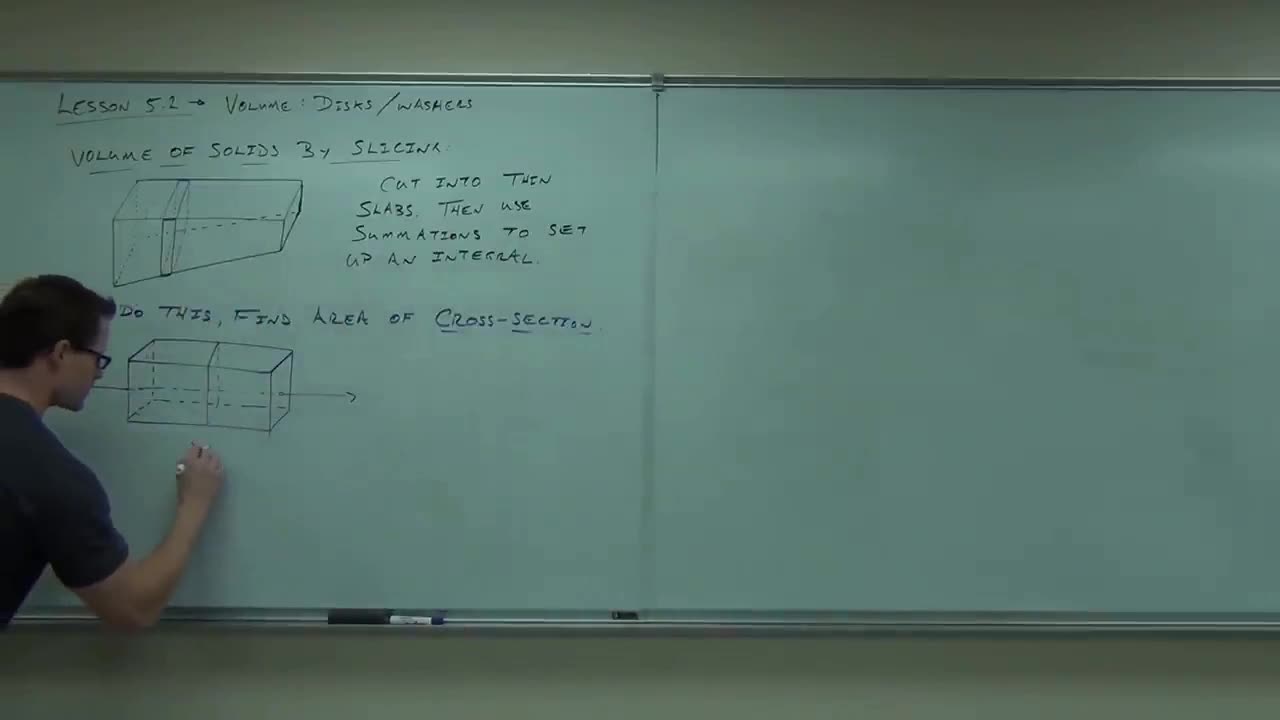 LESSON 5.2 → VOLUME: DISKS/WASHERS
VOLUME OF SOLIDS BY SLICING:
CUT INTO THIN
SLABS, THEN USE
SUMMATIONS TO SET
UP AN INTEGRAL.
DO THIS, FIND AREA OF CROSS-SECTION.